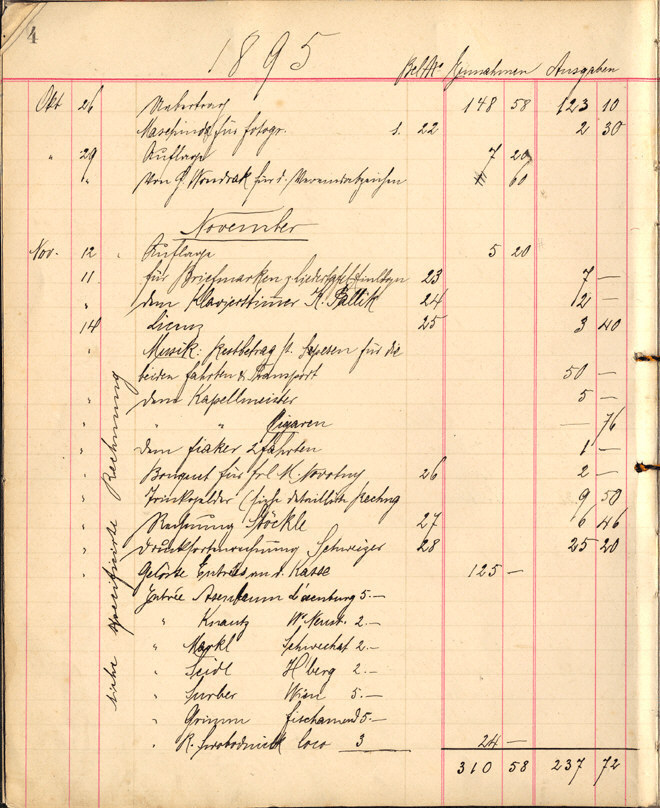 4
1895
Beil.No Einnahmen Ausgaben
Okt 26 Uebertrag 148 58 123 10
für fotogr. s. 22 2 30
" 29 Auflage 7 20
" Von J. Wondrak für d. Vereinsabzeichen 60
November
Nov. 12 Auflage 5 20
11 für Briefmarken 23 7 —
" dem Klavierstimer K. Pallik 24 2 —
14 Lienz 25 3 40
" Musik: Restbetrag st. Spesen für die
beiden fahrten & Transport 50 —
" dem Kapellmeister 5 —
" " " Cigaren — 76
" dem fiaker 2 fahrten 1 —
" Bouquet für frl. M. Novotny 26 2 —
" Trinkgelder (siehe detaillirte Rechng 9 50
" Rechnung Stöckle 27 6 46
" Drucksortenrechnung Schweiger 28 25 20
" Gelöste Entrées an d. Kasse 125 —
Entrée Asenbaum 5.—
" Knautz Wr Neust. 2.—
" Markl Schwechat 2.—
" Seidl H'berg 2.—
" Surber Wien 5.—
" Grimm fischamend 5.—
" R. loco 3 24 —
310 58 237 72
siehe specificirte Rechnung